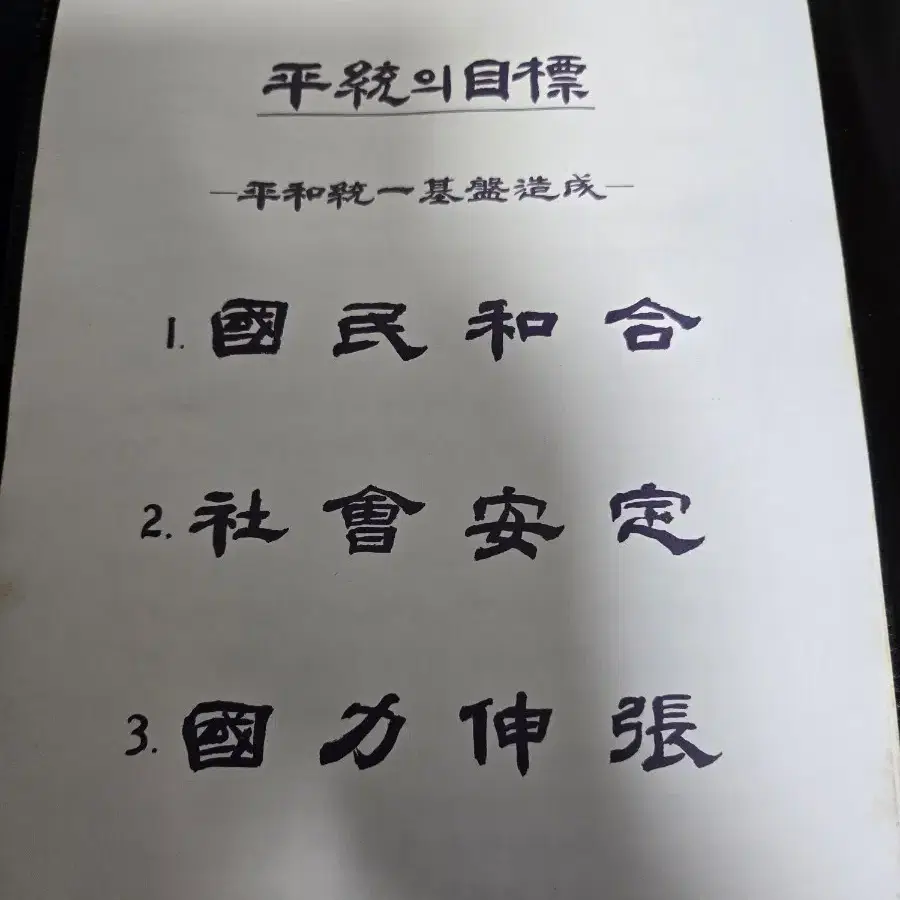 平統의目標
—平和統一基盤造成—
1. 國民和合
2. 社會安定
3. 國力伸張